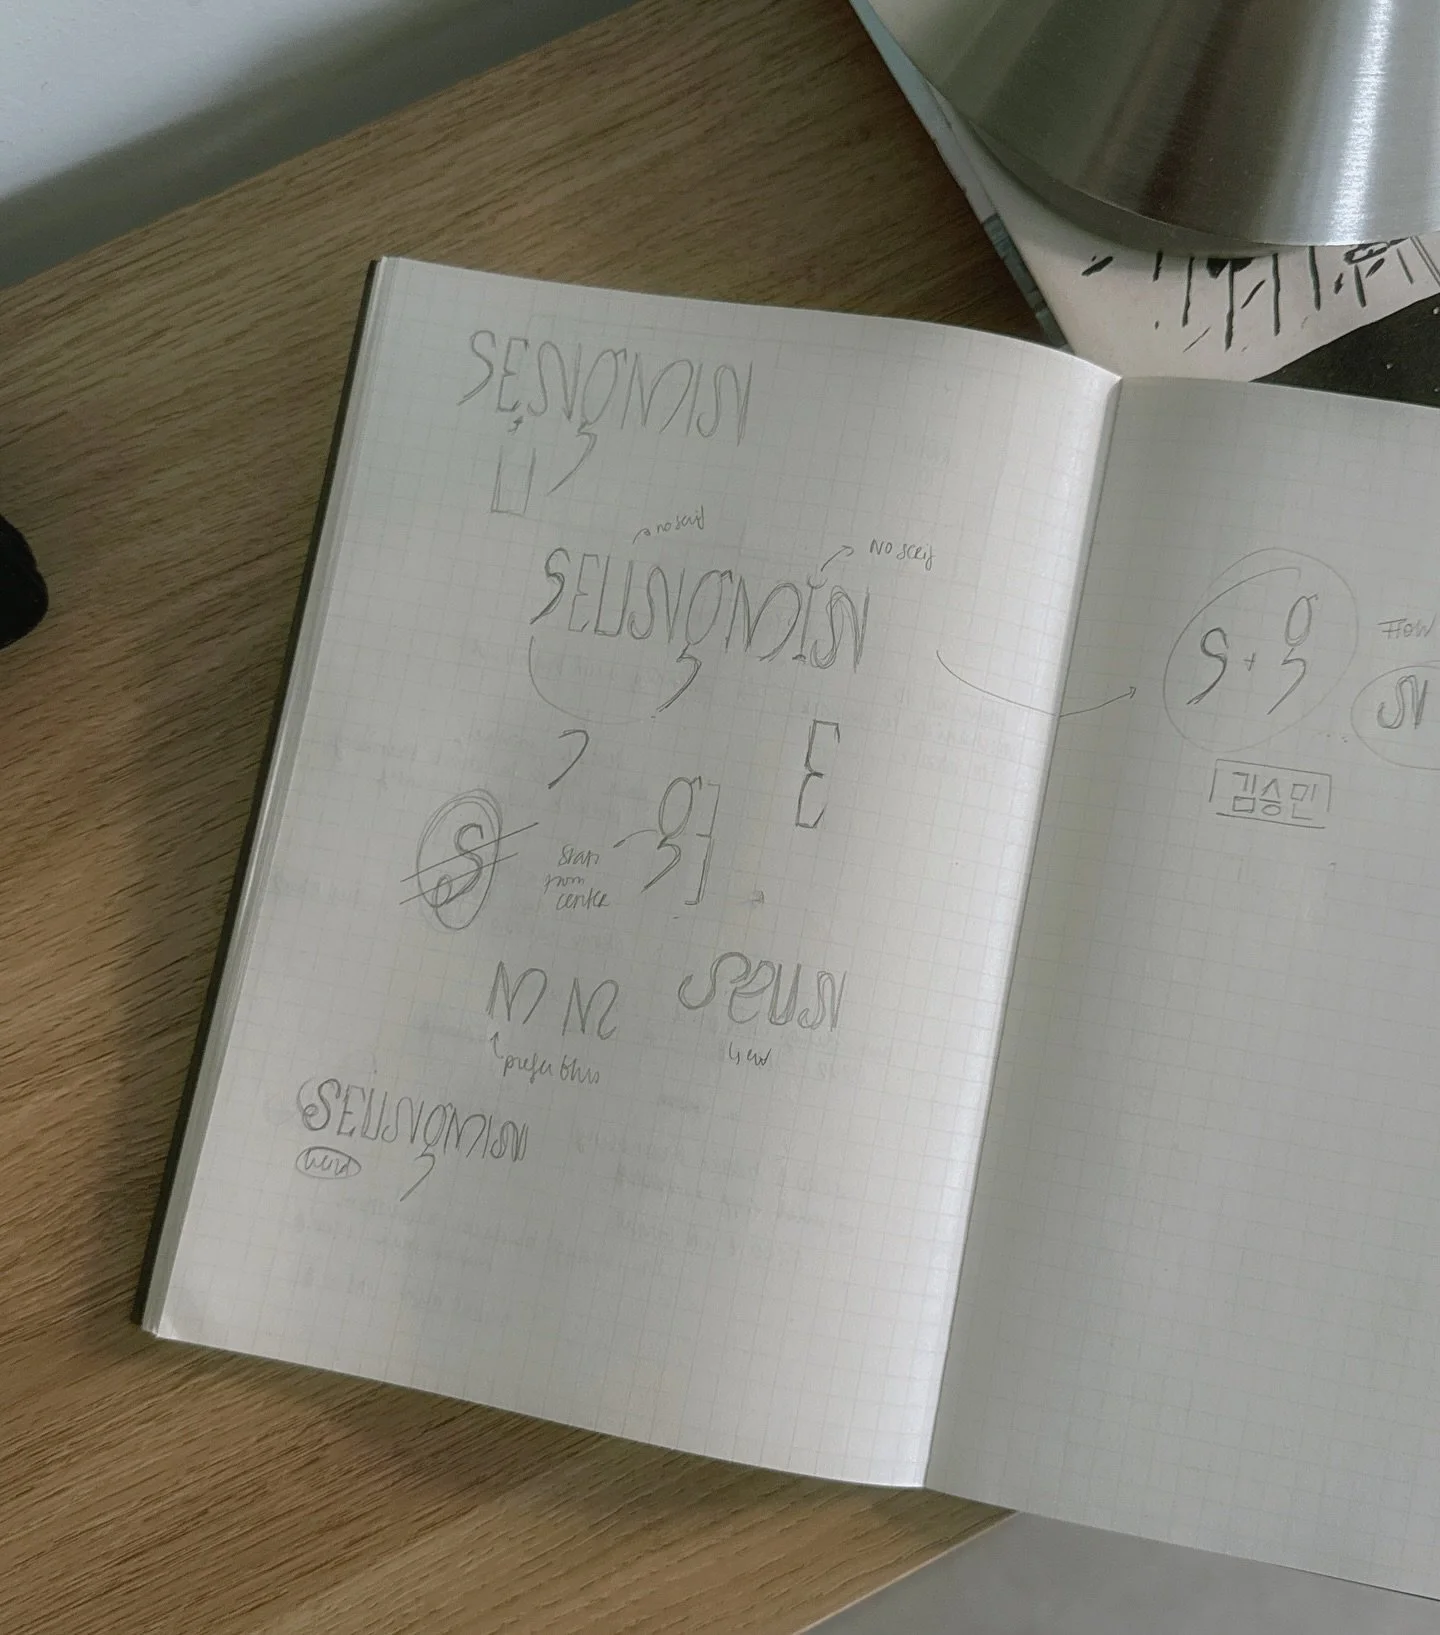 SEN​gMIN
U
no serif
No serif
SEUNgMIN
E
g
S
start
from
center
M M
SEUN
prefer this
SEUNgMIN
S + g
Flow
N
김승민